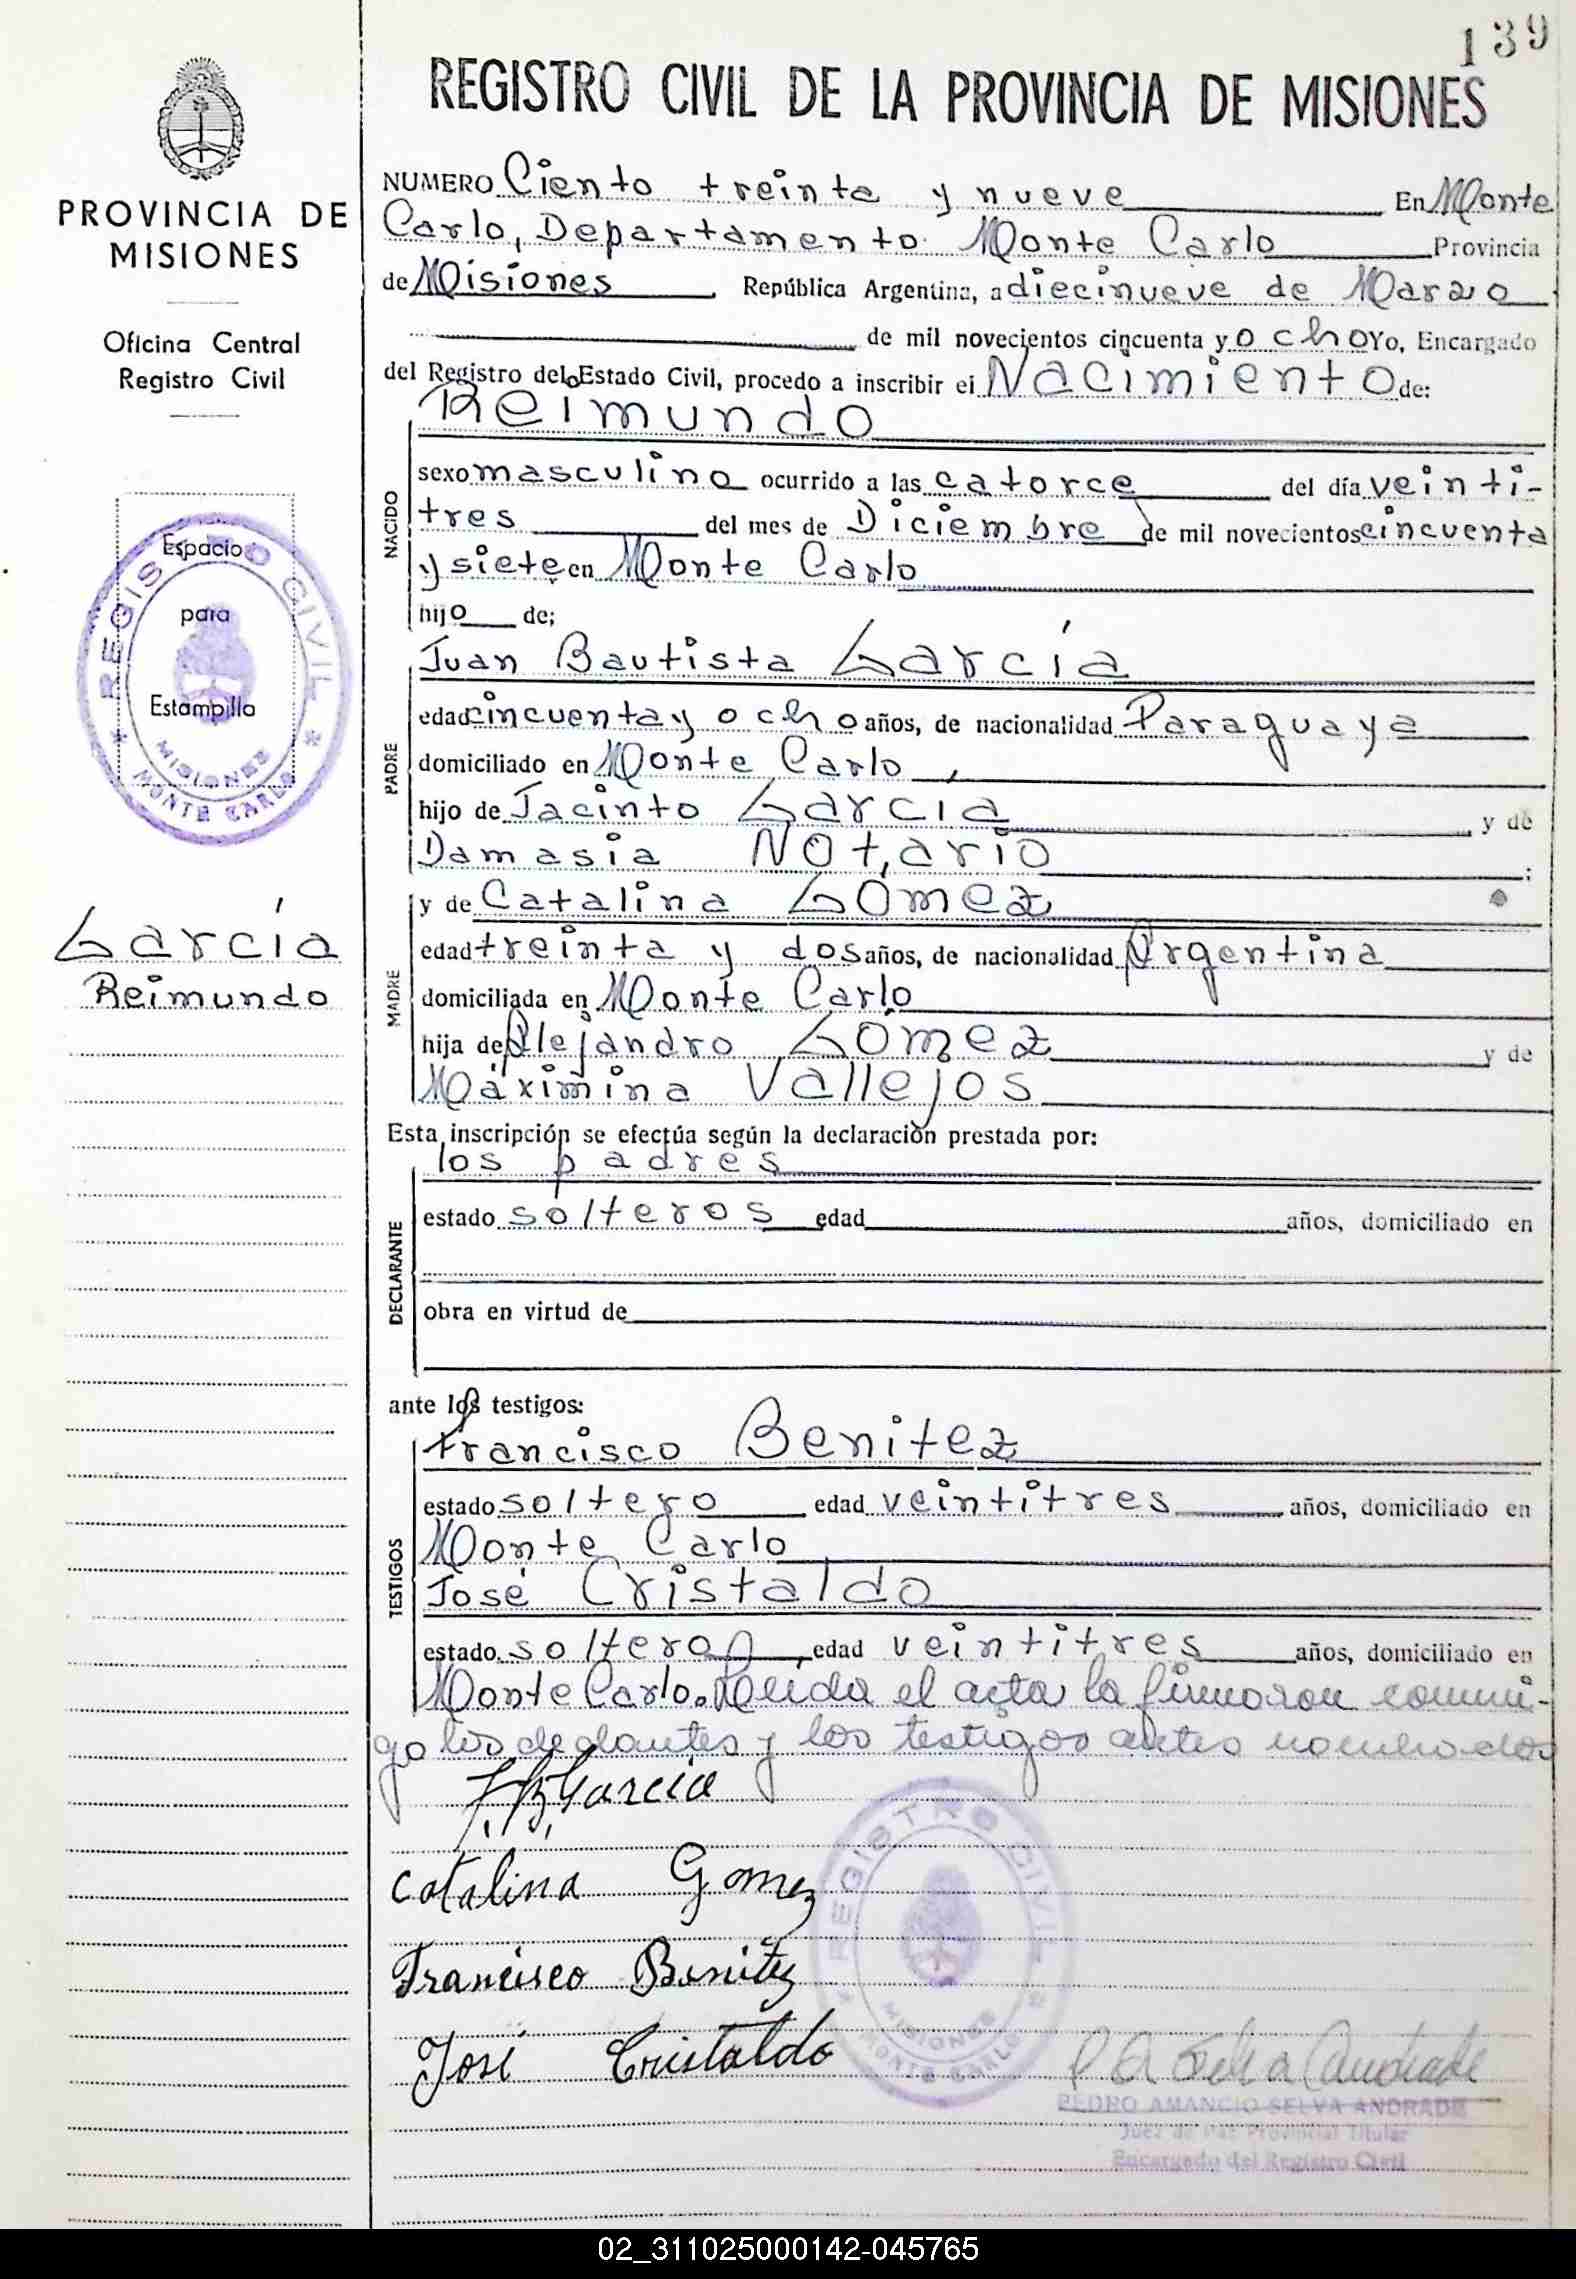 139
REGISTRO CIVIL DE LA PROVINCIA DE MISIONES
PROVINCIA DE
MISIONES
Oficina Central
Registro Civil
Espacio
para
Estampilla
REGISTRO CIVIL
MISIONES
MONTE CARLO
García
Reimundo
NUMERO Ciento treinta y nueve En Monte
Carlo, Departamento Monte Carlo Provincia
de Misiones, República Argentina, a diecinueve de Marzo
de mil novecientos cincuenta y ocho Yo, Encargado
del Registro del Estado Civil, procedo a inscribir el Nacimiento de:
Reimundo
NACIDO
sexo masculino ocurrido a las catorce del día veinti-
tres del mes de Diciembre de mil novecientos cincuenta
y siete en Monte Carlo
hijo de;
Juan Bautista García
PADRE
edad cincuenta y ocho años, de nacionalidad Paraguaya
domiciliado en Monte Carlo,
hijo de Jacinto García y de
Damasia Notario;
MADRE
y de Catalina Gómez
edad treinta y dos años, de nacionalidad Argentina
domiciliada en Monte Carlo
hija de Alejandro Gómez y de
Máximina Vallejos
Esta inscripción se efectúa según la declaración prestada por:
los padres
DECLARANTE
estado solteros edad años, domiciliado en
obra en virtud de
ante los testigos:
Francisco Benitez
TESTIGOS
estado soltero edad veintitres años, domiciliado en
Monte Carlo
José Cristaldo
estado soltero, edad veintitres años, domiciliado en
Monte Carlo. Leida el acta la firmaron conmi-
go los declantes y los testigos antes nombrados
J.B. Garcia
Catalina Gomez
Francisco Benitez
José Cristaldo
REGISTRO CIVIL
MISIONES
MONTE CARLO
P A Selva Andrade
PEDRO AMANCIO SELVA ANDRADE
Juez de Paz Provincial Titular
Encargado del Registro Civil
02_311025000142-045765